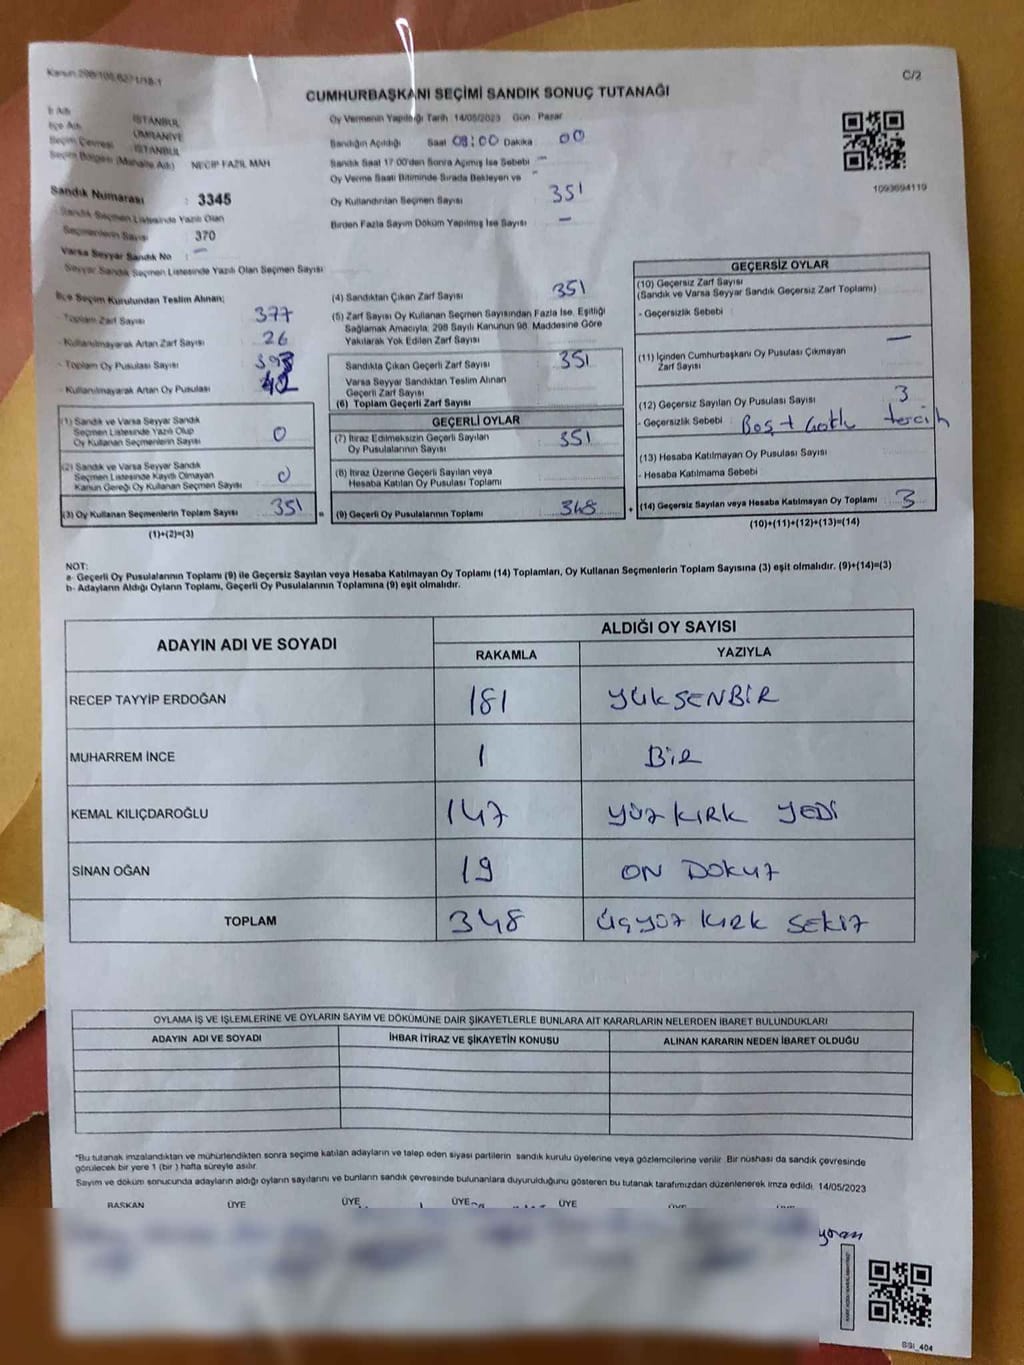 C/2
CUMHURBAŞKANI SEÇİMİ SANDIK SONUÇ TUTANAĞI
İl Adı İSTANBUL
İlçe Adı ÜMRANİYE
Seçim Çevresi İSTANBUL
Seçim Bölgesi (Mahalle Adı) NECİP FAZIL MAH
Sandık Numarası : 3345
Sandık Seçmen Listesinde Yazılı Olan
Seçmenlerin Sayısı : 370
Varsa Seyyar Sandık No : —
Seyyar Sandık Seçmen Listesinde Yazılı Olan Seçmen Sayısı
Oy Vermenin Yapıldığı Tarih 14/05/2023 Gün Pazar
Sandığın Açıldığı Saat 08:00 Dakika 00
Sandık Saat 17:00'den Sonra Açılmış İse Sebebi —
Oy Verme Saati Bitiminde Sırada Bekleyen ve
Oy Kullandırılan Seçmen Sayısı 351
Birden Fazla Sayım Döküm Yapılmış İse Sayısı —
1093694119
İlçe Seçim Kurulundan Teslim Alınan;
- Toplam Zarf Sayısı 377
- Kullanılmayarak Artan Zarf Sayısı 26
- Toplam Oy Pusulası Sayısı
- Kullanılmayarak Artan Oy Pusulası
(1) Sandık ve Varsa Seyyar Sandık
Seçmen Listesinde Yazılı Olup
Oy Kullanan Seçmenlerin Sayısı 0
(2) Sandık ve Varsa Seyyar Sandık
Seçmen Listesinde Kayıtlı Olmayan
Kanun Gereği Oy Kullanan Seçmen Sayısı 0
(3) Oy Kullanan Seçmenlerin Toplam Sayısı 351 =
(1)+(2)=(3)
(4) Sandıktan Çıkan Zarf Sayısı 351
(5) Zarf Sayısı Oy Kullanan Seçmen Sayısından Fazla İse, Eşitliği
Sağlamak Amacıyla; 298 Sayılı Kanunun 98. Maddesine Göre
Yakılarak Yok Edilen Zarf Sayısı
Sandıkta Çıkan Geçerli Zarf Sayısı 351
Varsa Seyyar Sandıktan Teslim Alınan
Geçerli Zarf Sayısı
(6) Toplam Geçerli Zarf Sayısı
GEÇERLİ OYLAR
(7) İtiraz Edilmeksizin Geçerli Sayılan
Oy Pusulalarının Sayısı 351
(8) İtiraz Üzerine Geçerli Sayılan veya
Hesaba Katılan Oy Pusulası Toplamı
(9) Geçerli Oy Pusulalarının Toplamı 348 +
GEÇERSİZ OYLAR
(10) Geçersiz Zarf Sayısı
(Sandık ve Varsa Seyyar Sandık Geçersiz Zarf Toplamı)
- Geçersizlik Sebebi :
(11) İçinden Cumhurbaşkanı Oy Pusulası Çıkmayan —
Zarf Sayısı
(12) Geçersiz Sayılan Oy Pusulası Sayısı 3
- Geçersizlik Sebebi Boş + Çoklu tercih
(13) Hesaba Katılmayan Oy Pusulası Sayısı
- Hesaba Katılmama Sebebi
(14) Geçersiz Sayılan veya Hesaba Katılmayan Oy Toplamı 3
(10)+(11)+(12)+(13)=(14)
NOT:
a- Geçerli Oy Pusulalarının Toplamı (9) ile Geçersiz Sayılan veya Hesaba Katılmayan Oy Toplamı (14) Toplamları, Oy Kullanan Seçmenlerin Toplam Sayısına (3) eşit olmalıdır. (9)+(14)=(3)
b- Adayların Aldığı Oyların Toplamı, Geçerli Oy Pusulalarının Toplamına (9) eşit olmalıdır.
ADAYIN ADI VE SOYADI ALDIĞI OY SAYISI
RAKAMLA YAZIYLA
RECEP TAYYİP ERDOĞAN 181 YÜKSENBİR
MUHARREM İNCE 1 BİR
KEMAL KILIÇDAROĞLU 147 YÜZ KIRK YEDİ
SİNAN OĞAN 19 ON DOKUZ
TOPLAM 348 ÜÇYÜZ KIRK SEKİZ
OYLAMA İŞ VE İŞLEMLERİNE VE OYLARIN SAYIM VE DÖKÜMÜNE DAİR ŞİKAYETLERLE BUNLARA AİT KARARLARIN NELERDEN İBARET BULUNDUKLARI
ADAYIN ADI VE SOYADI İHBAR İTİRAZ VE ŞİKAYETİN KONUSU ALINAN KARARIN NEDEN İBARET OLDUĞU
*Bu tutanak imzalandıktan ve mühürlendikten sonra seçime katılan adayların ve talep eden siyasi partilerin sandık kurulu üyelerine veya gözlemcilerine verilir. Bir nüshası da sandık çevresinde
görülecek bir yere 1 (bir) hafta süreyle asılır.
Sayım ve döküm sonucunda adayların aldığı oyların sayılarını ve bunların sandık çevresinde bulunanlara duyurulduğunu gösteren bu tutanak tarafımızdan düzenlenerek imza edildi. 14/05/2023
BAŞKAN ÜYE ÜYE ÜYE ÜYE